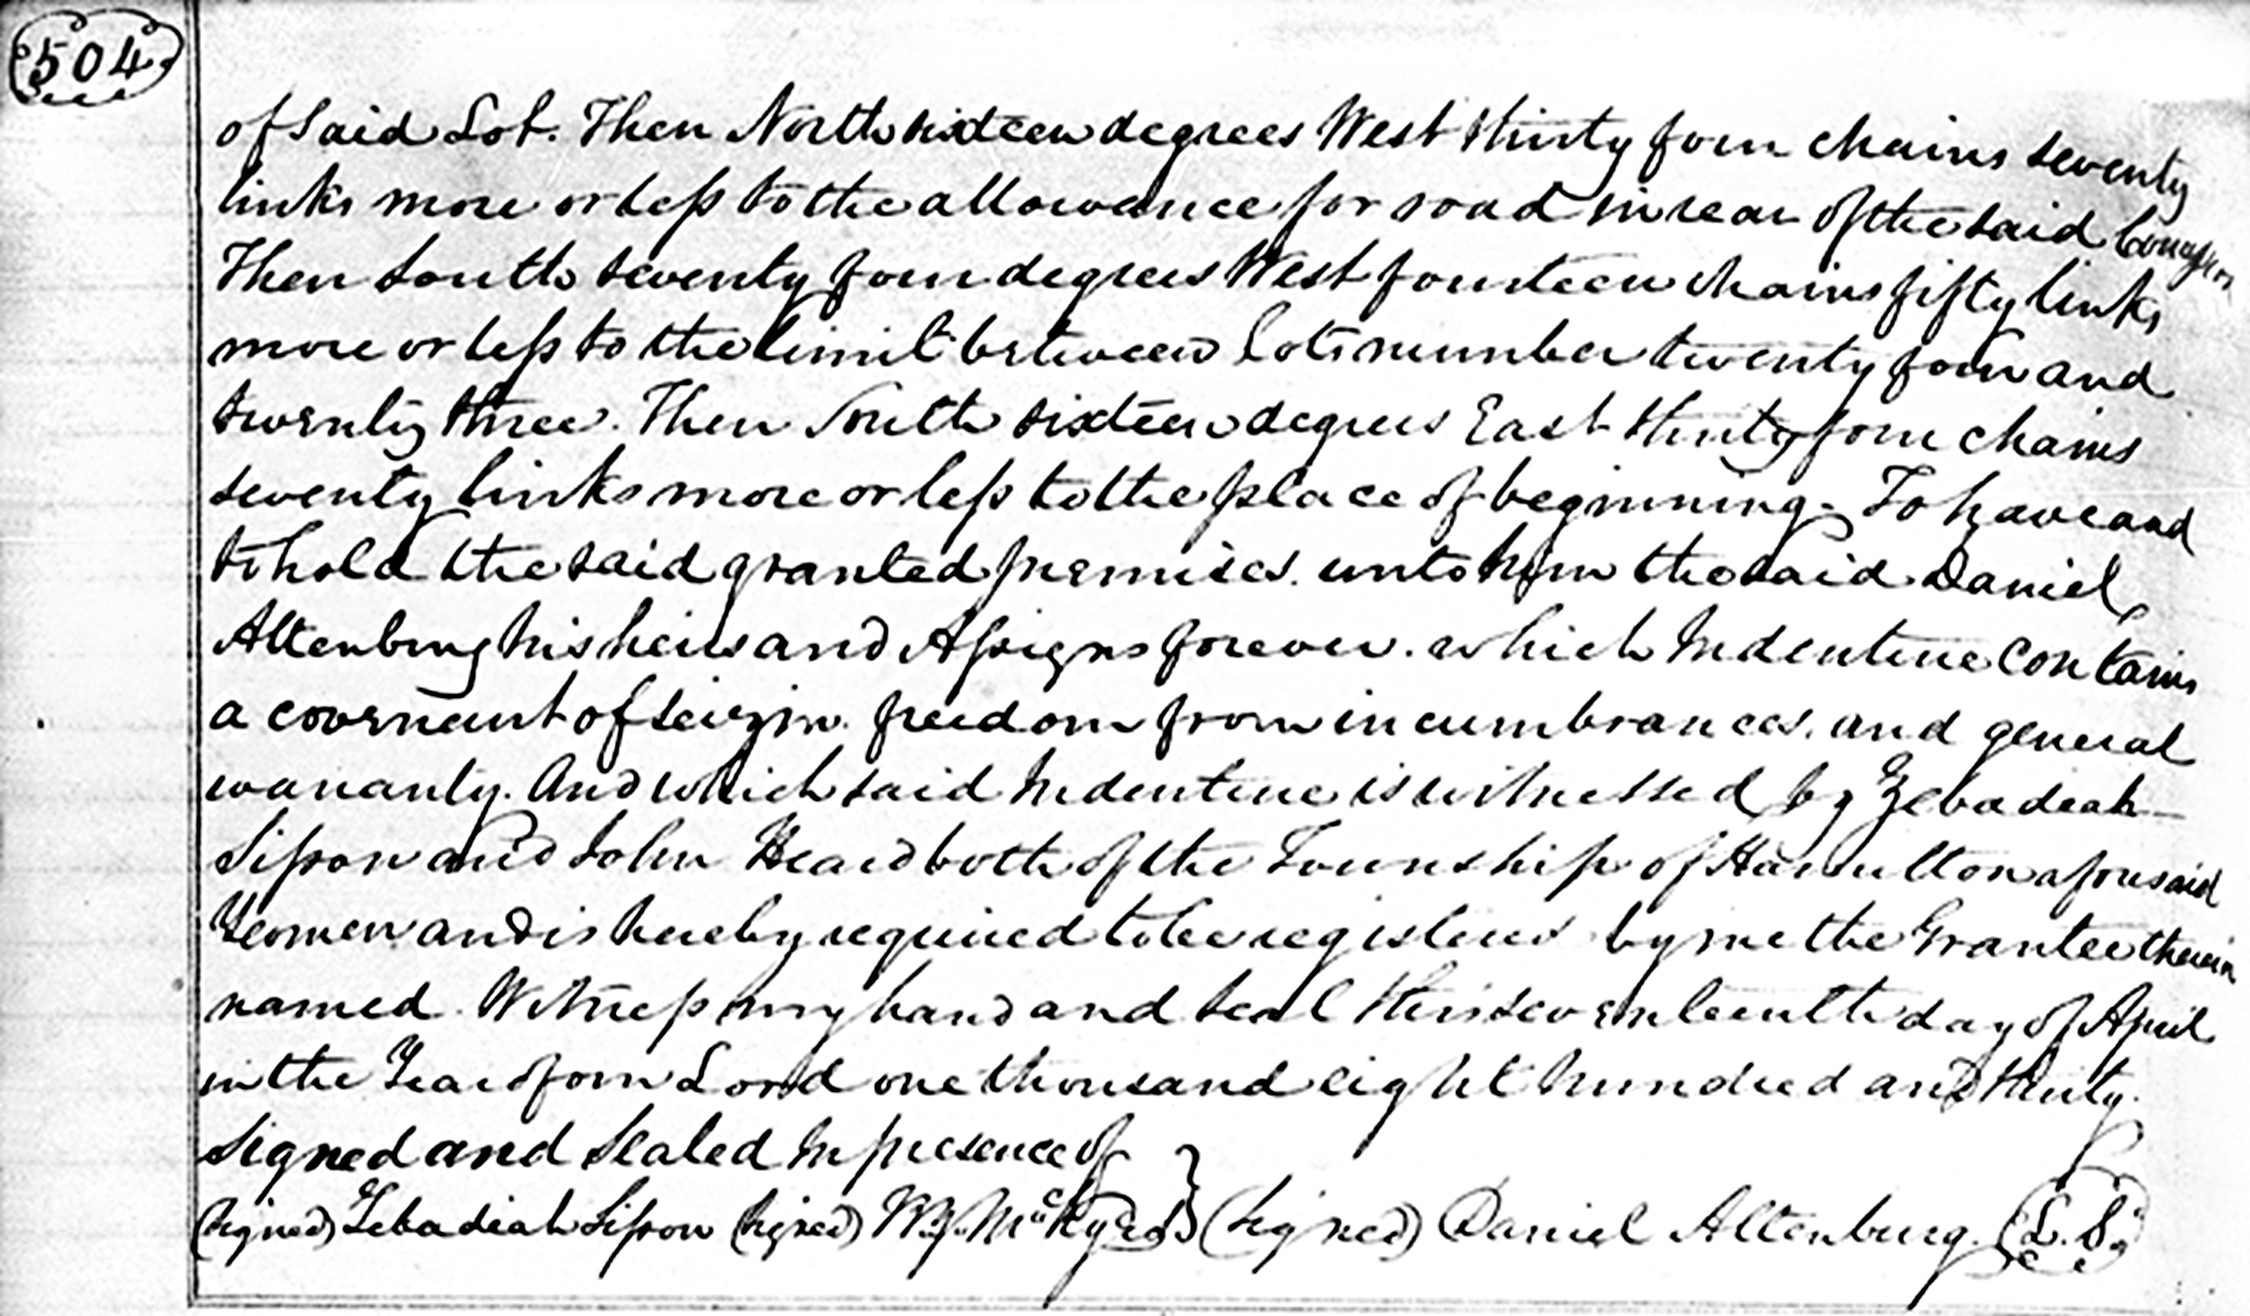 504
of Said Lot. Then North sixteen degrees West thirty four chains seventy
links more or less to the allowance for road in rear of the said
Then South seventy four degrees West fourteen chains fifty links
more or less to the limit between Lots number twenty four and
twenty three. Then South sixteen degrees East thirty four chains
seventy links more or less to the place of beginning. To have and
to hold the said granted premises. unto him the said Daniel
Altenburg his heirs and Assigns forever. which Indenture contains
a covenant of seizin. freedom from incumbrances. and general
warranty. And which said Indenture is witnessed by Zebadeah
Sisson and John Heard both of the Township of Hamilton aforesaid
Yeomen and is hereby required to be registered by me the Grantee therein
named. Witness my hand and seal this seventeenth day of April
in the Year of our Lord one thousand eight hundred and thirty.
Signed and Sealed In presence of
(Signed) Zebadiah Sisson (Signed) (Signed) Daniel Altenburg. (L.S.)